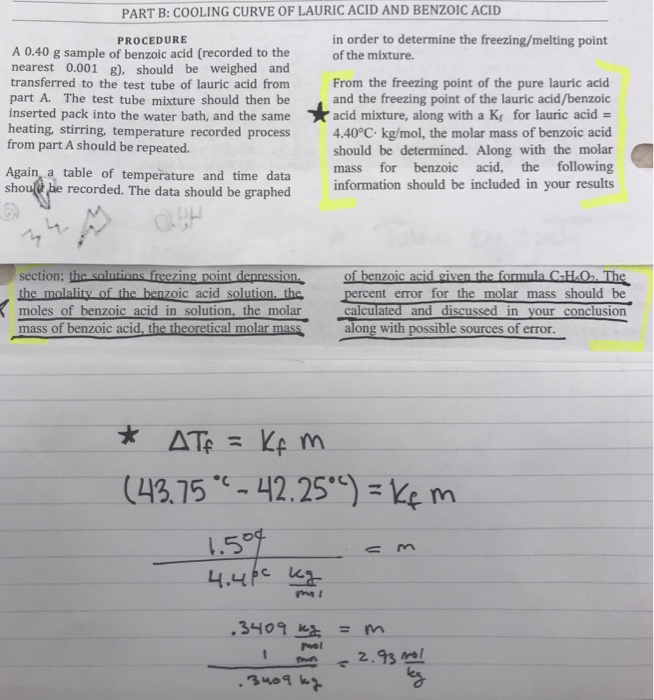 PART B: COOLING CURVE OF LAURIC ACID AND BENZOIC ACID
PROCEDURE
A 0.40 g sample of benzoic acid (recorded to the
nearest 0.001 g), should be weighed and
transferred to the test tube of lauric acid from
part A. The test tube mixture should then be
inserted pack into the water bath, and the same
heating, stirring, temperature recorded process
from part A should be repeated.
Again, a table of temperature and time data
should be recorded. The data should be graphed
in order to determine the freezing/melting point
of the mixture.
From the freezing point of the pure lauric acid
and the freezing point of the lauric acid/benzoic
acid mixture, along with a Kf for lauric acid =
4.40°C· kg/mol, the molar mass of benzoic acid
should be determined. Along with the molar
mass for benzoic acid, the following
information should be included in your results
section; the solutions freezing point depression,
the molality of the benzoic acid solution, the
moles of benzoic acid in solution, the molar
mass of benzoic acid, the theoretical molar mass
of benzoic acid given the formula C7H6O2. The
percent error for the molar mass should be
calculated and discussed in your conclusion
along with possible sources of error.
★ ΔTf = Kf m
(43.75 °C - 42.25°C) = Kf m
1.5°C = m
4.4°C kg
mol
.3409 kg = m
mol
1 mol = 2.93 mol
.3409 kg kg